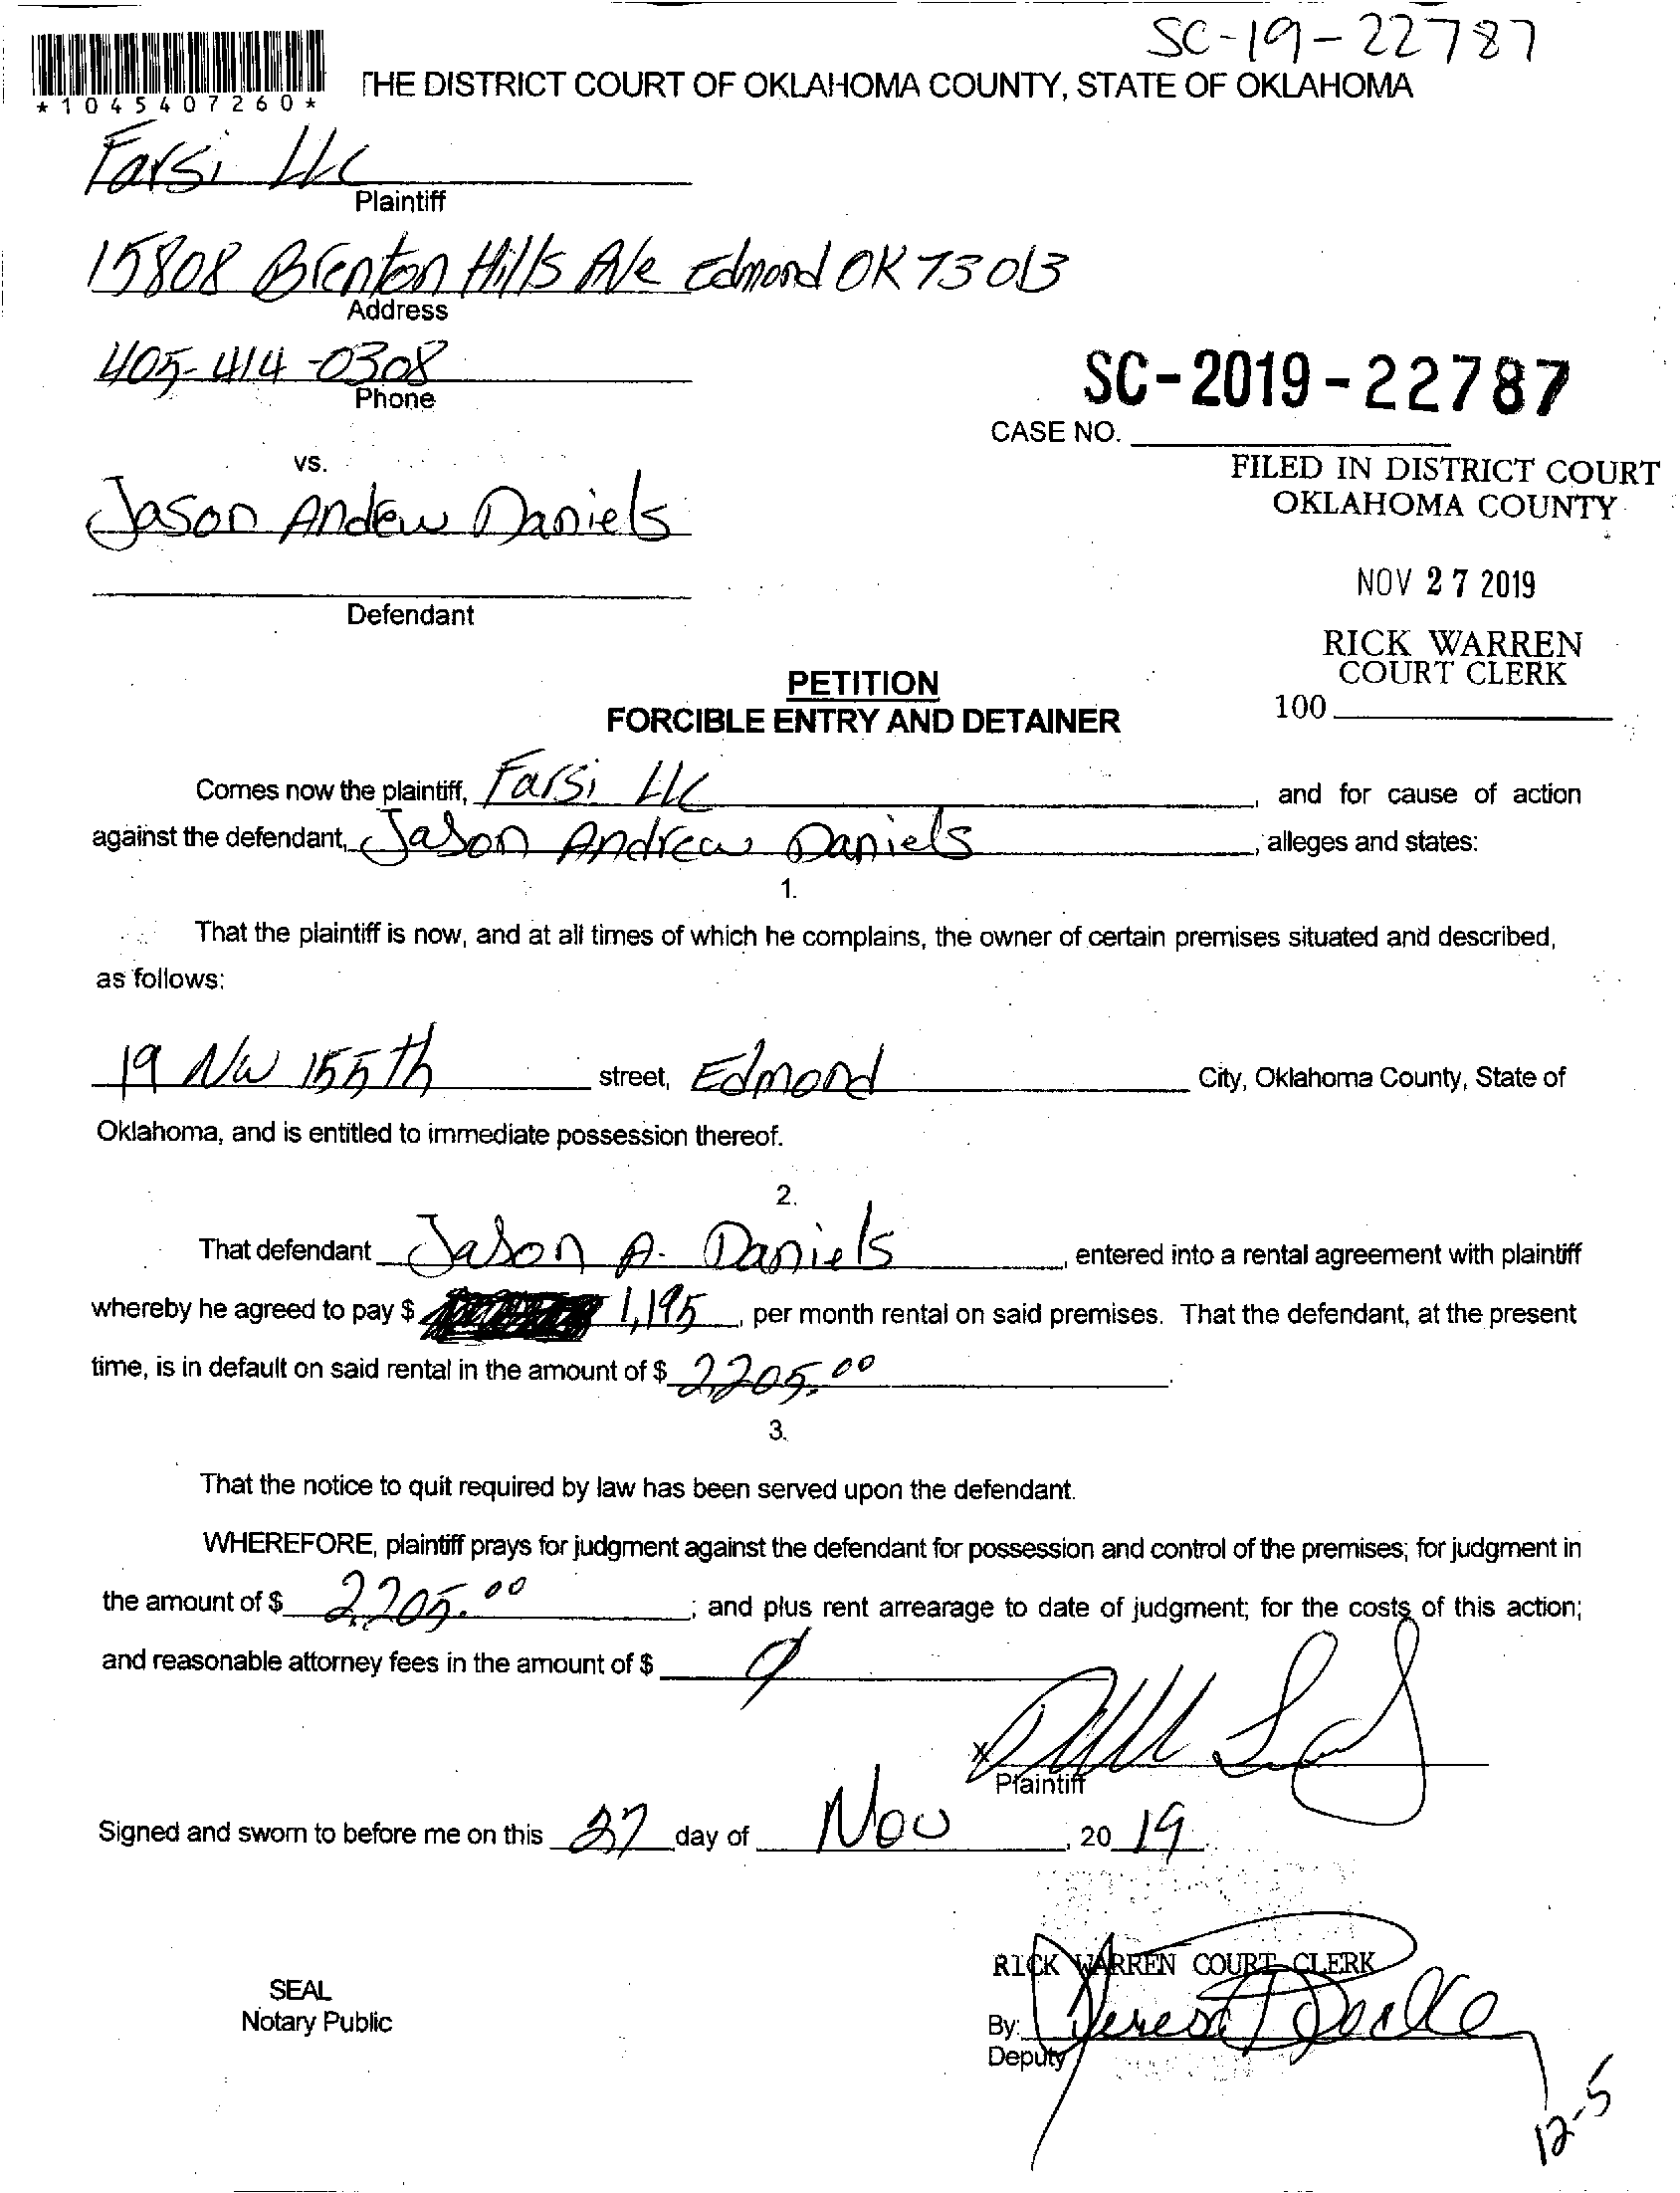 SC-19-22787
*1045407260*
THE DISTRICT COURT OF OKLAHOMA COUNTY, STATE OF OKLAHOMA
Farsi LLC
Plaintiff
15808 Brenton Hills Ave Edmond OK 73013
Address
405-414-0308
Phone
SC-2019-22787
CASE NO.
vs.
FILED IN DISTRICT COURT
OKLAHOMA COUNTY
Jason Andew Daniels
NOV 27 2019
Defendant
RICK WARREN
COURT CLERK
100
PETITION
FORCIBLE ENTRY AND DETAINER
Comes now the plaintiff, Farsi LLC, and for cause of action
against the defendant, Jason Andrew Daniels, alleges and states:
1.
That the plaintiff is now, and at all times of which he complains, the owner of certain premises situated and described,
as follows:
19 NW 155th street, Edmond City, Oklahoma County, State of
Oklahoma, and is entitled to immediate possession thereof.
2.
That defendant Jason A. Daniels, entered into a rental agreement with plaintiff
whereby he agreed to pay $ 1,195, per month rental on said premises. That the defendant, at the present
time, is in default on said rental in the amount of $ 2,205.00.
3.
That the notice to quit required by law has been served upon the defendant.
WHEREFORE, plaintiff prays for judgment against the defendant for possession and control of the premises; for judgment in
the amount of $ 2,205.00; and plus rent arrearage to date of judgment; for the costs of this action;
and reasonable attorney fees in the amount of $
x
Plaintiff
Signed and sworn to before me on this 27 day of Nov, 2019
RICK WARREN COURT CLERK
SEAL
Notary Public
By:
Deputy
12-5